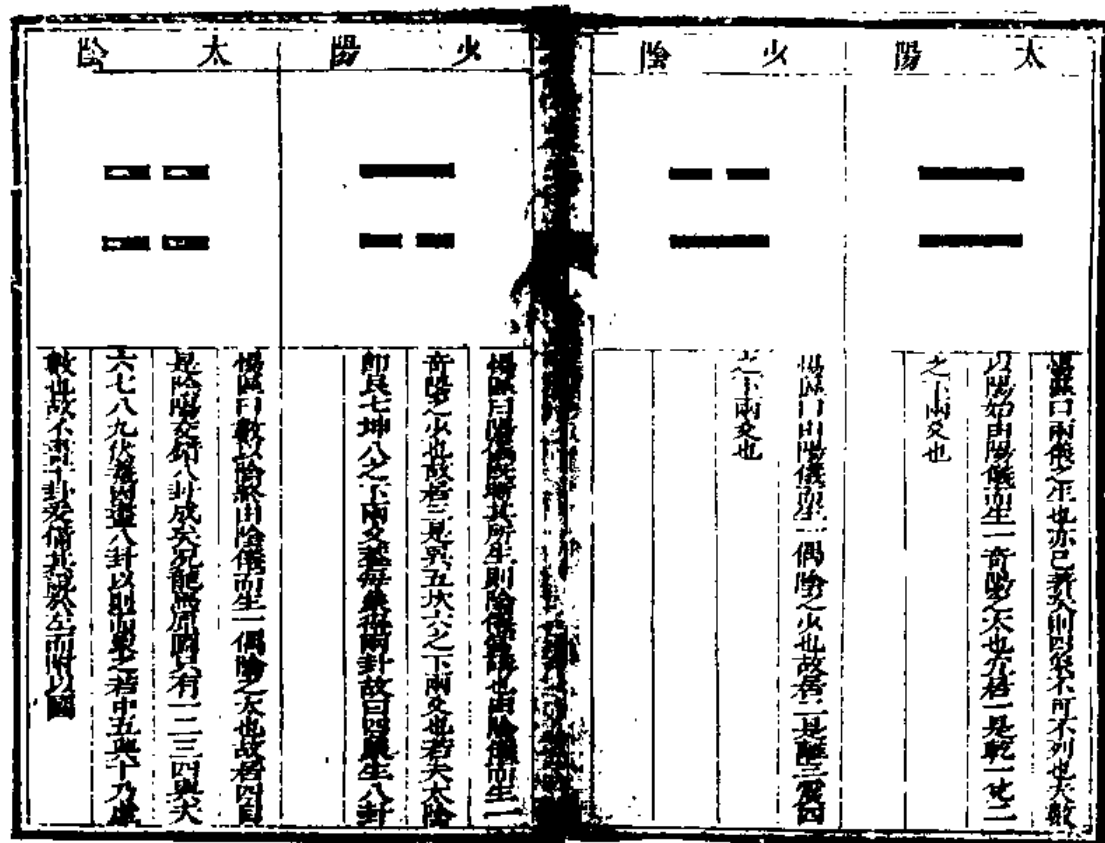 太陽
曰兩儀之生也亦已著矣則四象不可不列也夫數
以陽始由陽儀而生一奇陽之太也故居一是乾一兌二
之下兩爻也
少陰
楊區曰由陽儀而生一偶陰之少也故居二是離三震四
之下兩爻也
少陽
楊區曰陽儀既 其所生則陰儀 也由陰儀而生一
奇陽之少也故居三是巽五坎六之下兩爻也若夫太陰
即艮七坤八之下兩爻 每象得兩卦故曰四象生八卦
太陰
楊區曰數以陰終由陰儀而生一偶陰之太也故居四自
是陰陽交錯八卦成矣況龍馬 只有一二三四與夫
六七八九伏羲因畫八卦以則而象之若中五與十乃虛
數也故不畫十卦爰備其說於左而附以圖